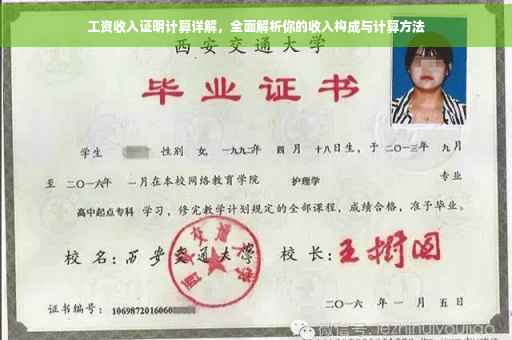 工资收入证明计算详解，全面解析你的收入构成与计算方法
西安交通大学
毕业证书
学生 性别 女, 一九九二年 四 月 十八日生, 于 二〇一三年 九月
至 二〇一六年 一月在本校网络教育学院 护理学 专业
高中起点专科 学习, 修完教学计划规定的全部课程, 成绩合格, 准予毕业。
校 名: 西安交通大学 校 长: 王树国
西安交通大学
证书编号: 1069872016060
二〇一六 年 一 月 五 日
微信号: jiezhihuiyoujiao